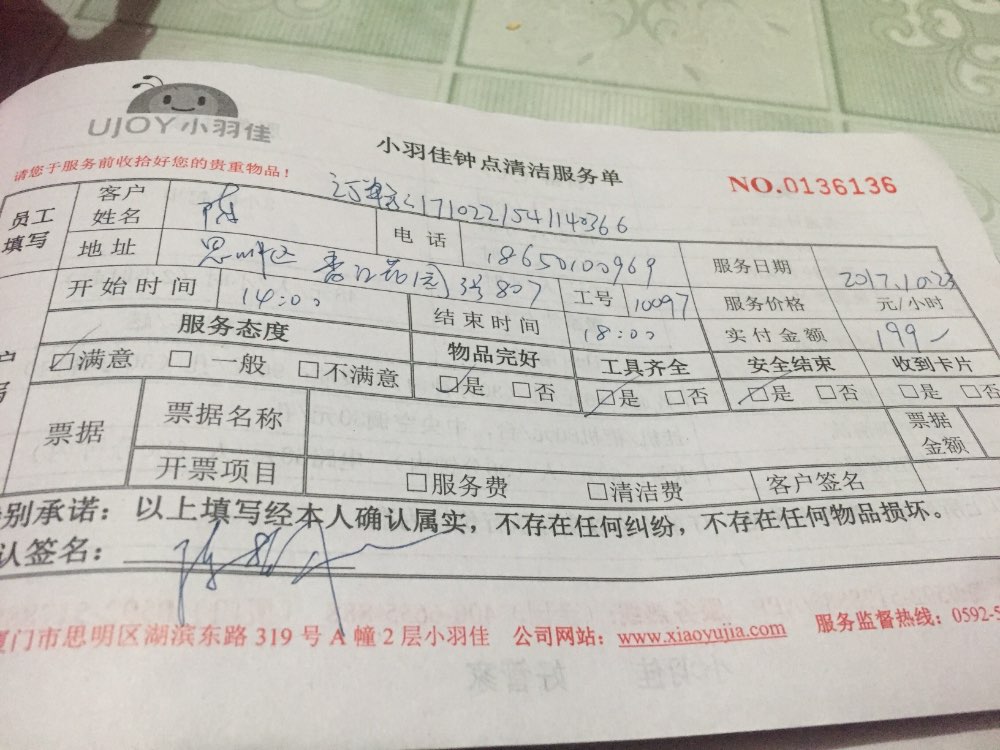 UJOY小羽佳
小羽佳钟点清洁服务单
请您于服务前收拾好您的贵重物品！
NO.0136136
171022154114036 6
员工填写 客户姓名 陈 电话 18650100969 服务日期 2017.10.23
地址 思明区 3号807 工号 10097 服务价格 元/小时
开始时间 14:00 结束时间 18:00 实付金额 199
服务态度 物品完好 工具齐全 安全结束 收到卡片
☑满意 □一般 □不满意 ☑是 □否 ☑是 □否 ☑是 □否 □是 □否
票据 票据名称 票据金额
开票项目 □服务费 □清洁费 客户签名
别承诺：以上填写经本人确认属实，不存在任何纠纷，不存在任何物品损坏。
认签名：
厦门市思明区湖滨东路 319 号 A 幢 2 层小羽佳 公司网站：www.xiaoyujia.com 服务监督热线：0592-5